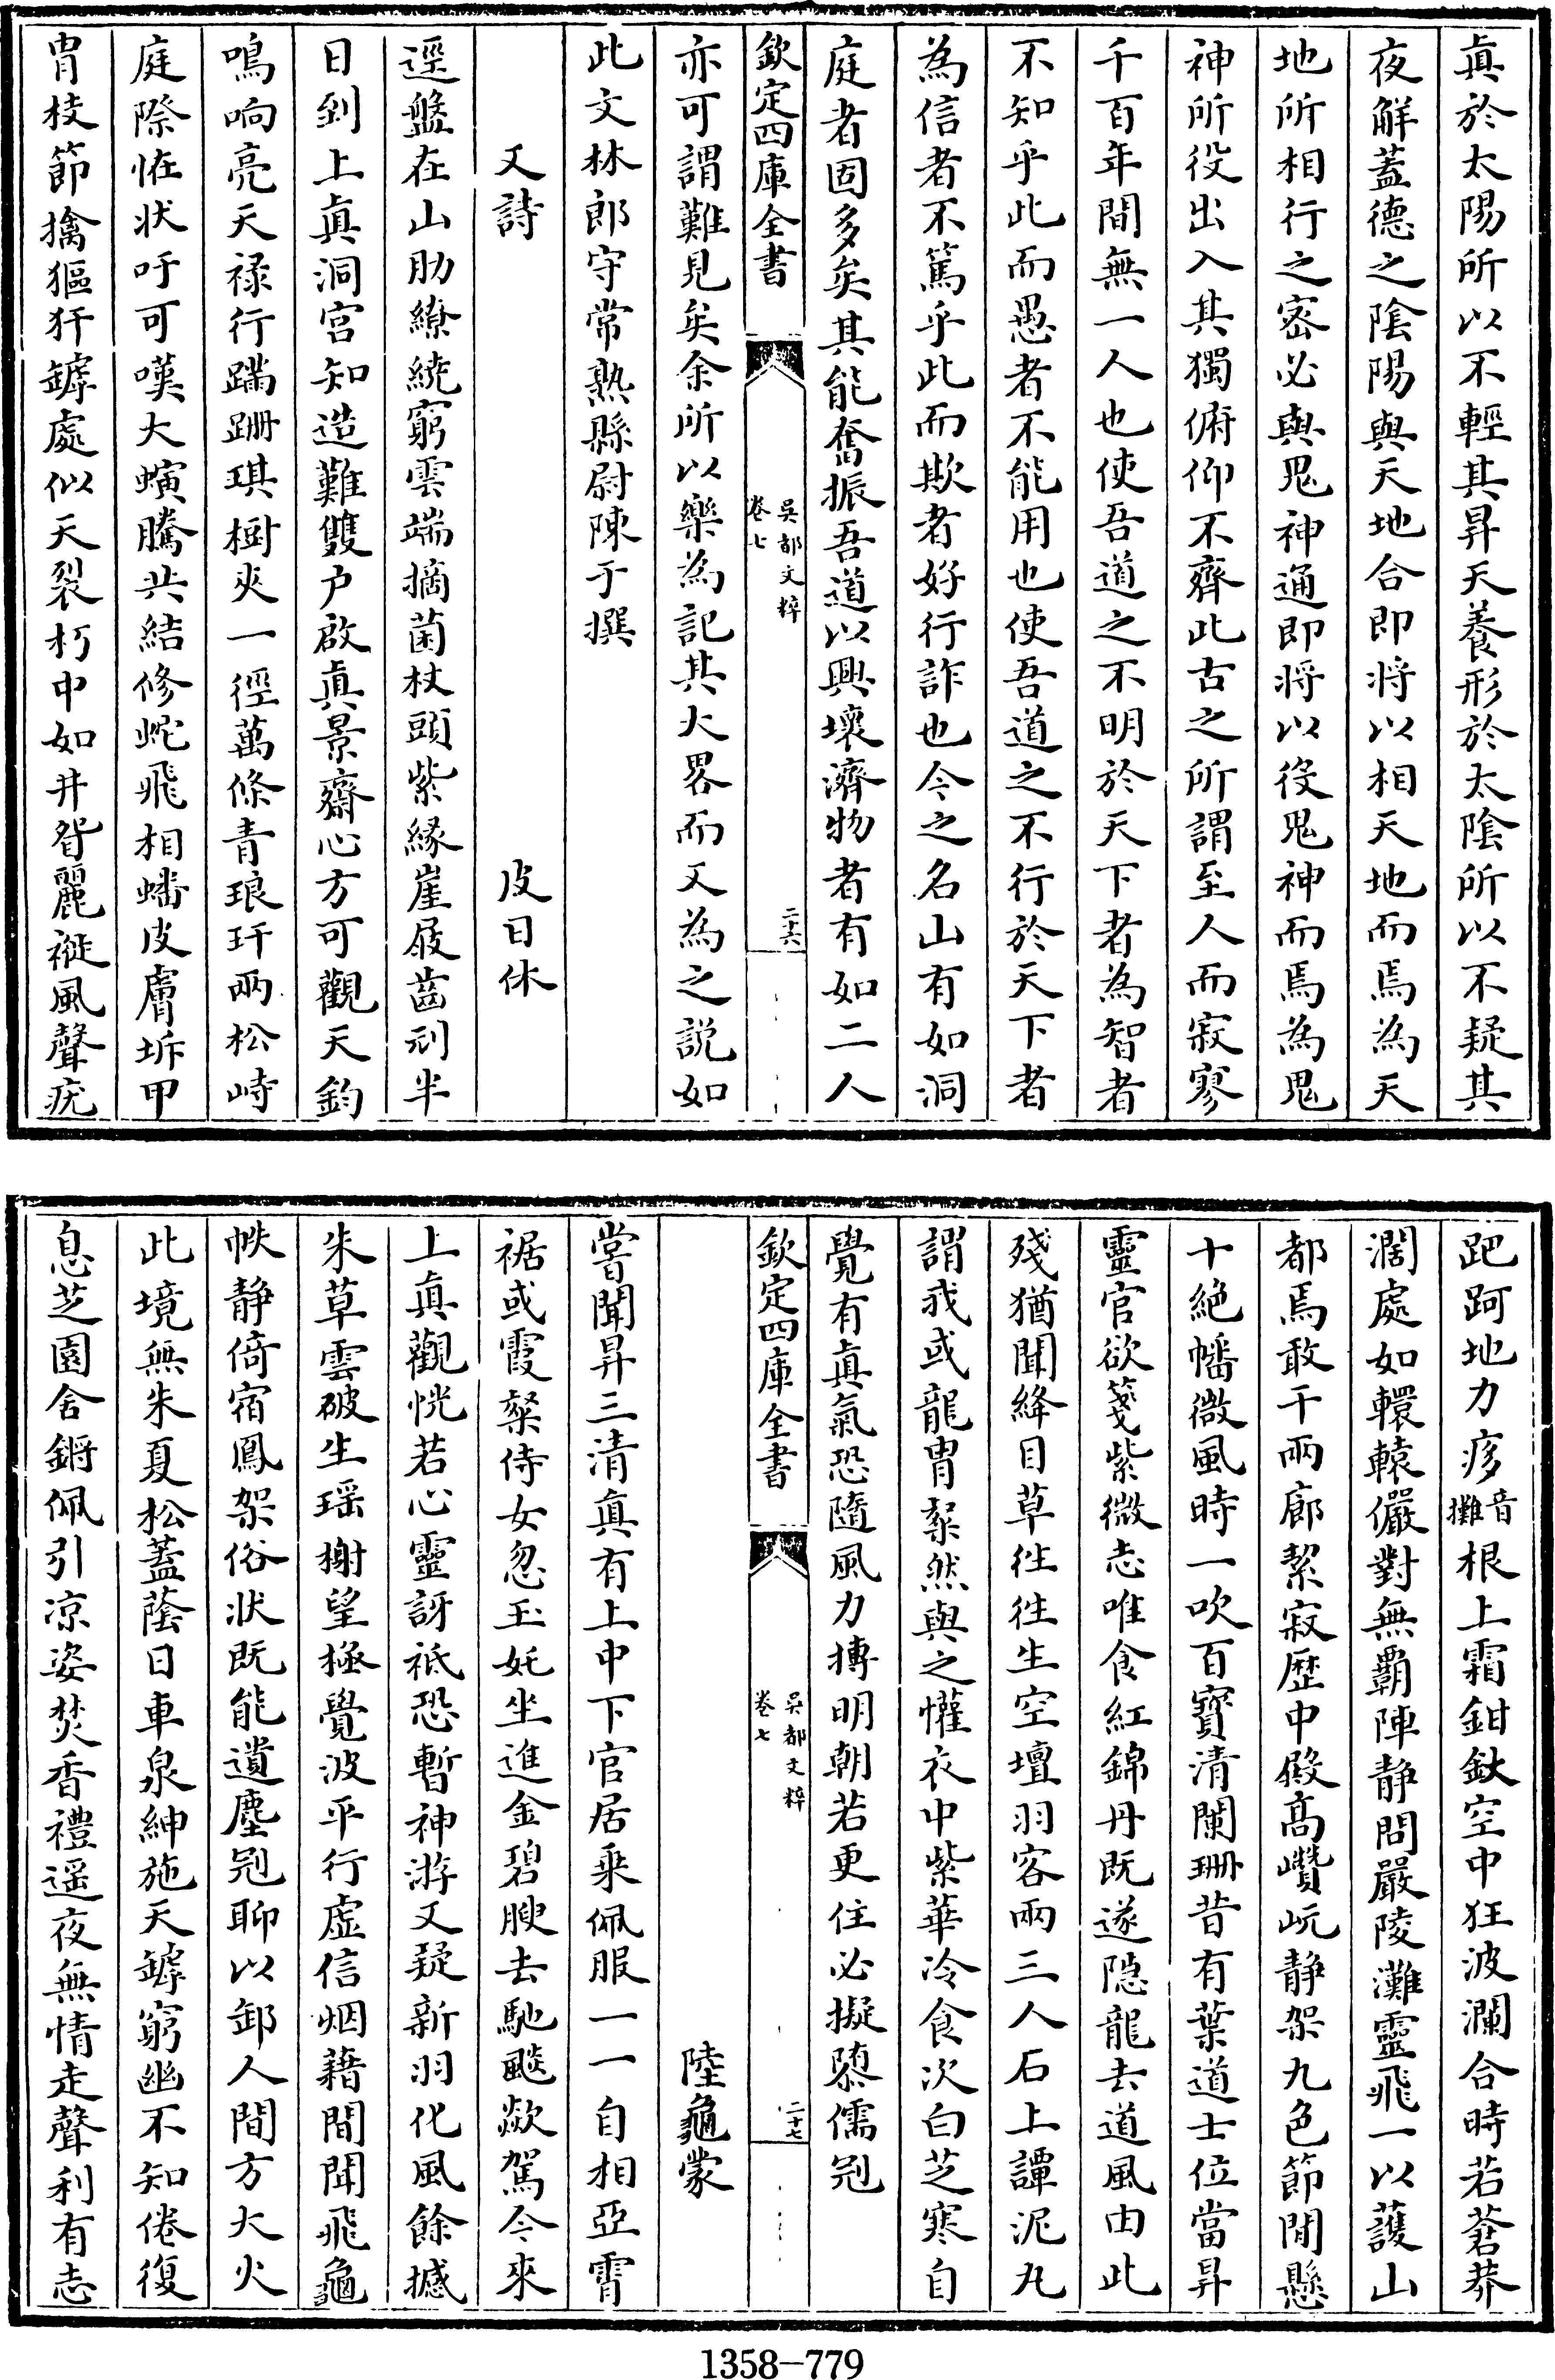 真於太陽所以不輕其昇天養形於太陰所以不疑其
夜解蓋德之陰陽與天地合即將以相天地而焉為天
地所相行之密必與鬼神通即將以役鬼神而焉為鬼
神所役出入其獨俯仰不齊此古之所謂至人而寂寥
千百年間無一人也使吾道之不明於天下者為智者
不知乎此而愚者不能用也使吾道之不行於天下者
為信者不篤乎此而欺者好行詐也今之名山有如洞
庭者固多矣其能奮振吾道以興壞濟物者有如二人
欽定四庫全書
吳都文粹
卷七
二十六
亦可謂難見矣余所以樂為記其大畧而又為之説如
此文林郎守常熟縣尉陳于撰
又詩
皮日休
逕盤在山肋繚繞窮雲端摘菌杖頭紫緣崖屐齒刓半
日到上真洞宫知造難雙户啟真景齋心方可觀天鈞
鳴响亮天祿行蹣跚琪樹夾一徑萬條青琅玕兩松峙
庭際恠状吁可嘆大螾騰共結修虵飛相蟠皮膚坼甲
胄枝節擒貙犴罅處似天裂朽中如井眢䙰褷風聲疣
跁跒地力痑音攤根上霜鉗釱空中狂波瀾合時若蒼莽
濶處如轘轅儼對無霸陣静問嚴陵灘靈飛一以護山
都焉敢干兩廊㓗寂歴中殿髙巑岏静架九色節閒懸
十絶幡微風時一吹百寳清闌珊昔有葉道士位當昇
靈官欲箋紫微志唯食紅錦丹既遂隠龍去道風由此
殘猶聞絳目草徃徃生空壇羽容兩三人石上譚泥丸
謂我或龍胄粲然與之懽衣中紫華冷食次白芝寒自
覺有真氣恐隨風力摶明朝若更住必擬隳儒冠
欽定四庫全書
吳都文粹
卷七
二十七
陸龜蒙
嘗聞昇三清真有上中下官居乗佩服一一自相亞霄
裾或霞粲侍女忽玉奼坐進金碧腴去馳颷歘駕今來
上真觀恍若心靈訝祗恐暫神游又疑新羽化風餘撼
朱草雲破生瑶榭望極覺波平行虚信烟藉閒聞飛龜
帙静倚宿鳳架俗状既能遺塵冠聊以卸人間方大火
此境無朱夏松蓋蔭日車泉紳施天罅窮幽不知倦復
息芝園舍鏘佩引凉姿焚香禮遥夜無情走聲利有志
1358—779